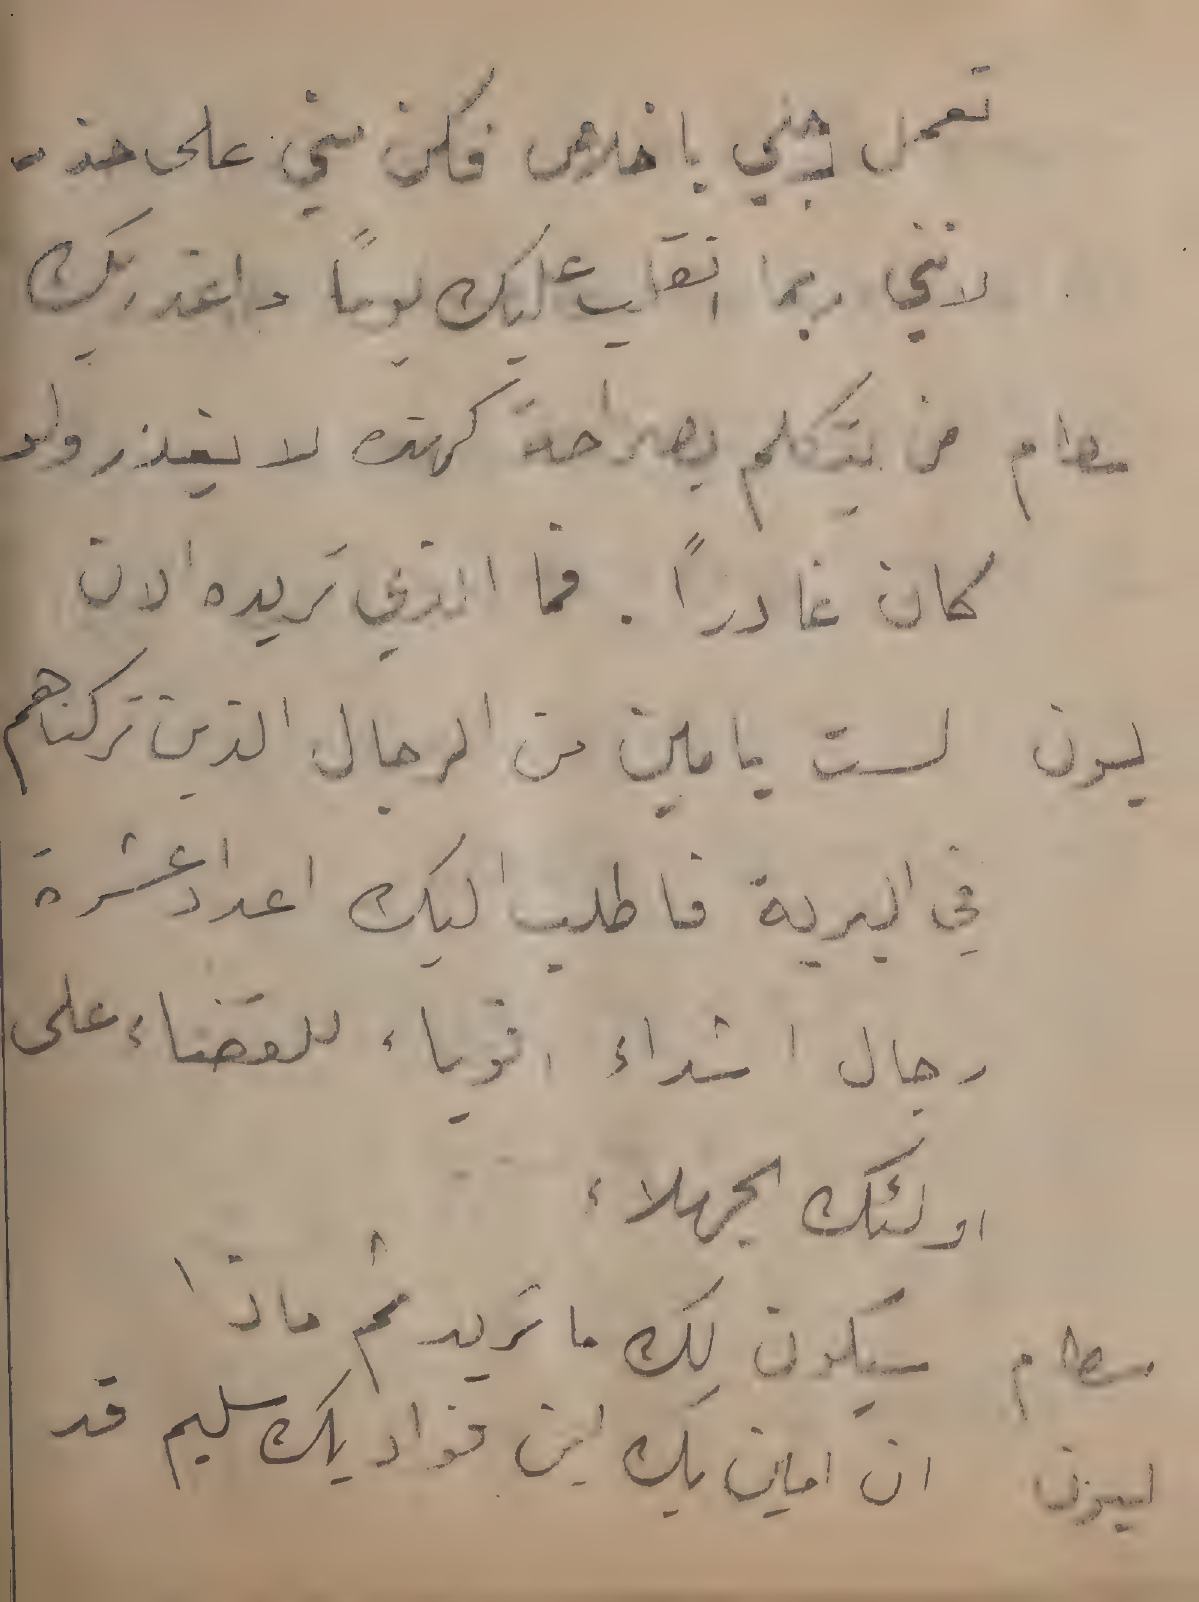 تعمل لجني باخلاص فكن مني على حذر
لانني ربما انقلب عليك يوماً واغدر بك
سطام من يتكلم بصراحة كهذه لا يغدر ولو
كان غادراً . فما الذي تريده الان
ليون لست يامين من الرجال الذين تركناهم
في البرية فاطلب اليك اعداد عشرة
رجال اشداء اقوياء للقضاء على
اولئك الجهلاء
سطام سيكون لك ما تريد ثم ماذا
ليون ان امين بك ابن فواد بك سليم قد